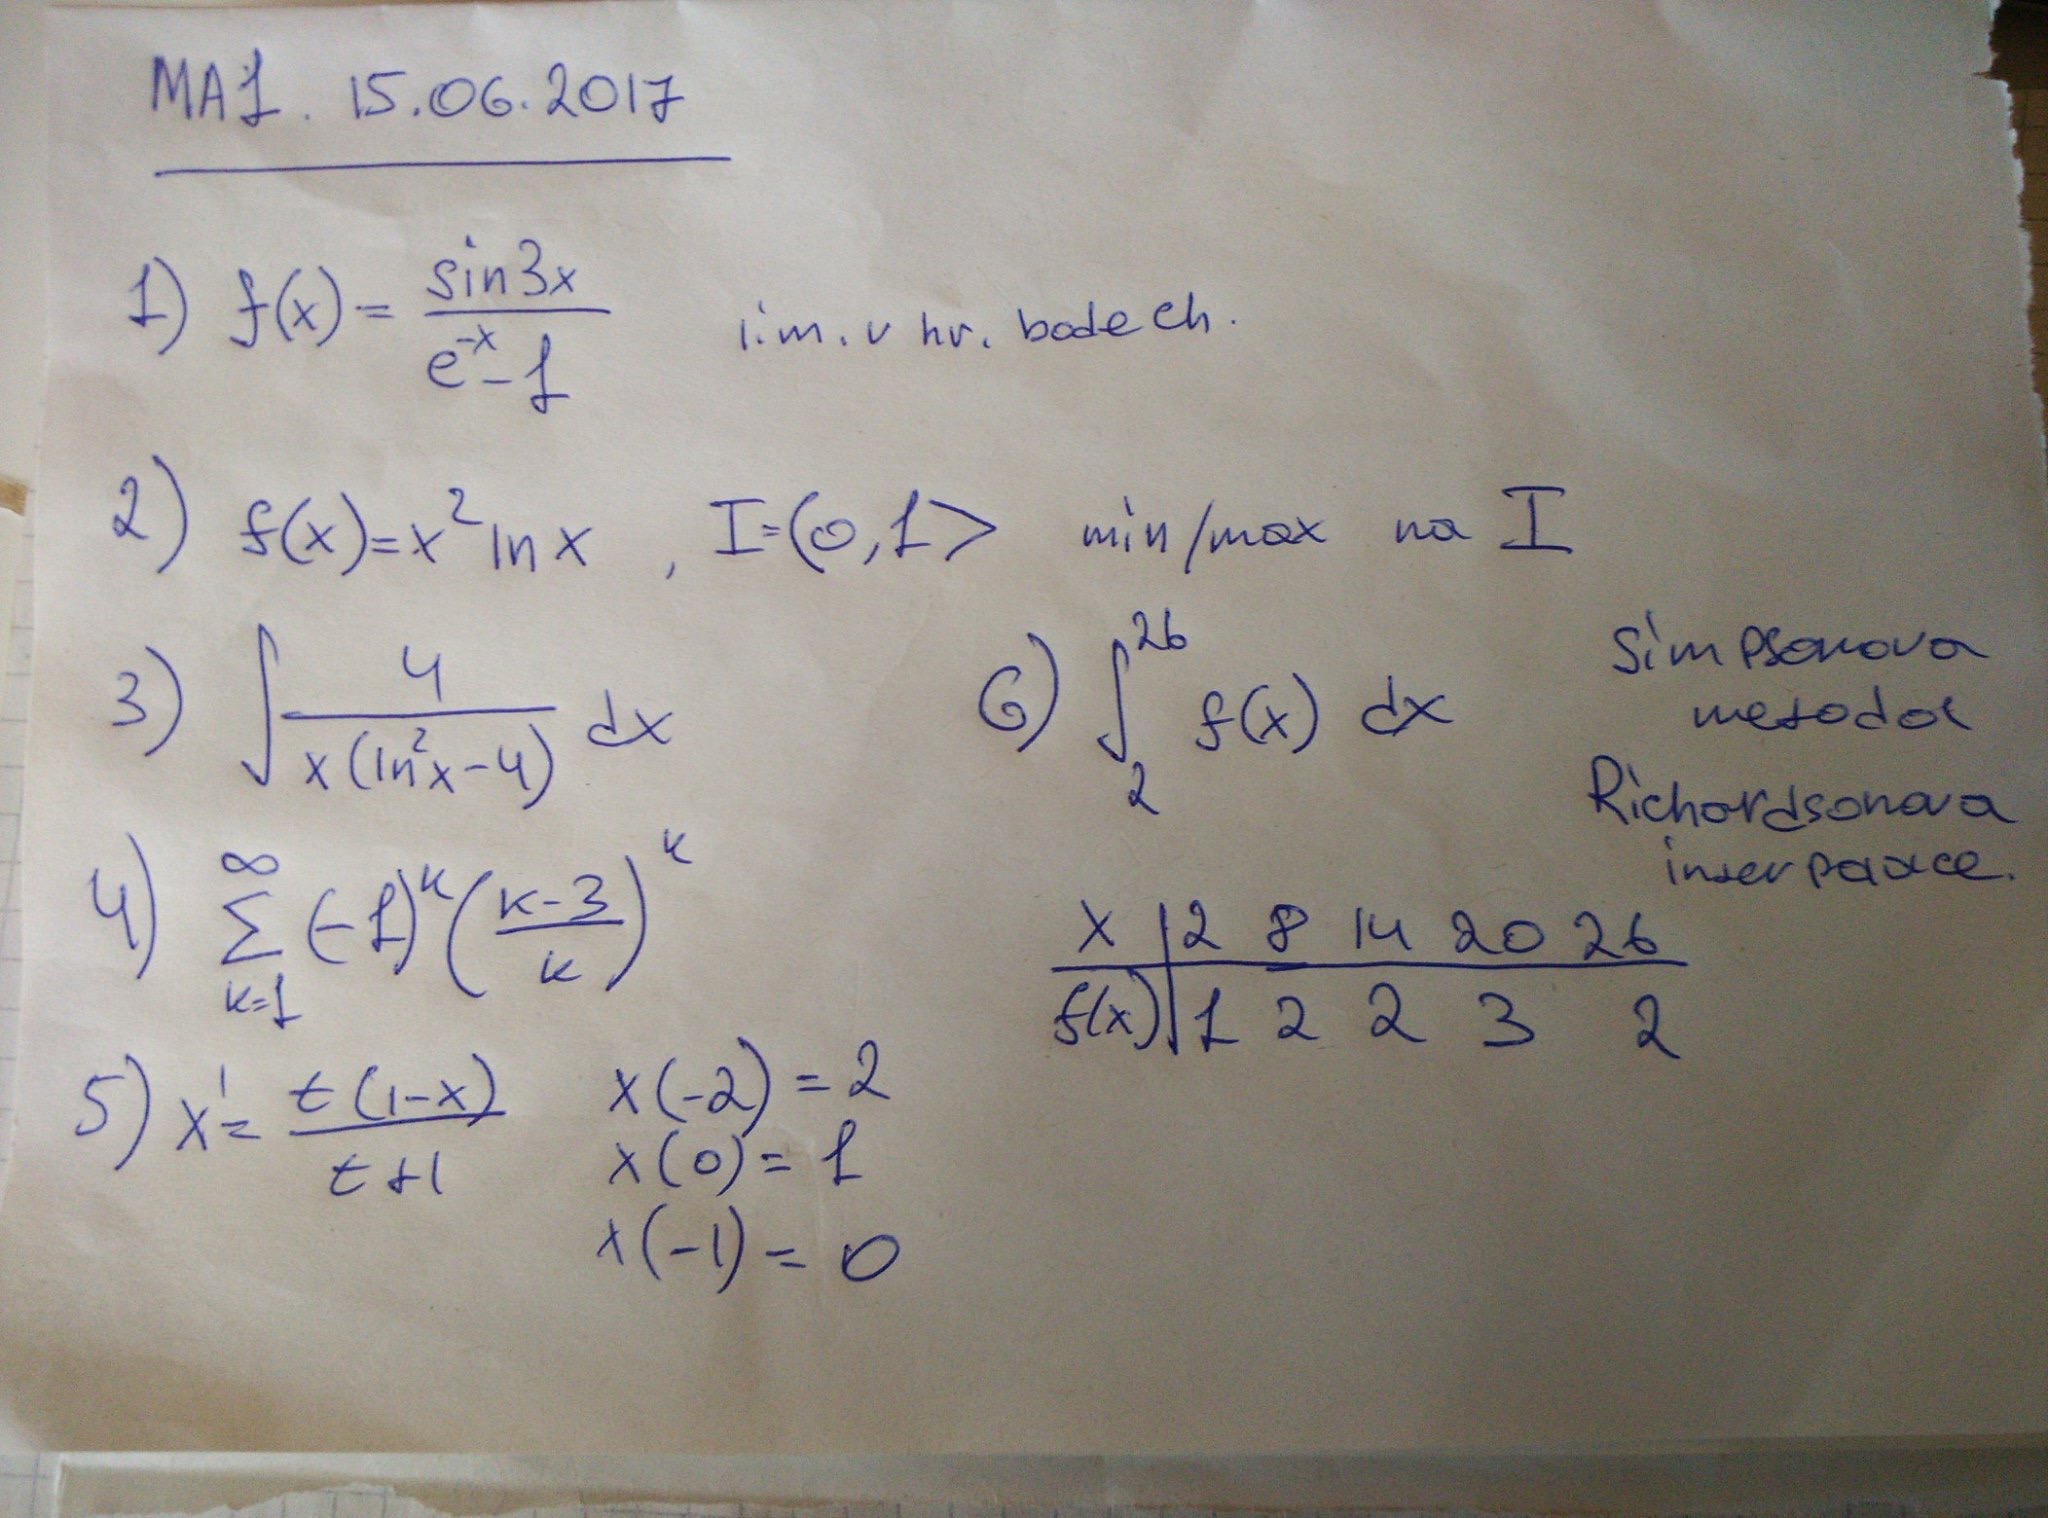 MA1. 15.06.2017
1) f(x) = sin3x / (e^-x - 1) lim. v hr. bodech.
2) f(x)=x² ln x , I=(0,1> min/max na I
3) ∫ 4 / (x(ln²x-4)) dx
4) ∞ Σ k=1 (-1)^k ((k-3)/k)^k
5) x' = t(1-x) / (t+1) x(-2) = 2
x(0) = 1
x(-1) = 0
6) ∫ 26 2 f(x) dx
Simpsonova
metoda
Richardsonova
x | 2 8 14 20 26
f(x) | 1 2 2 3 2